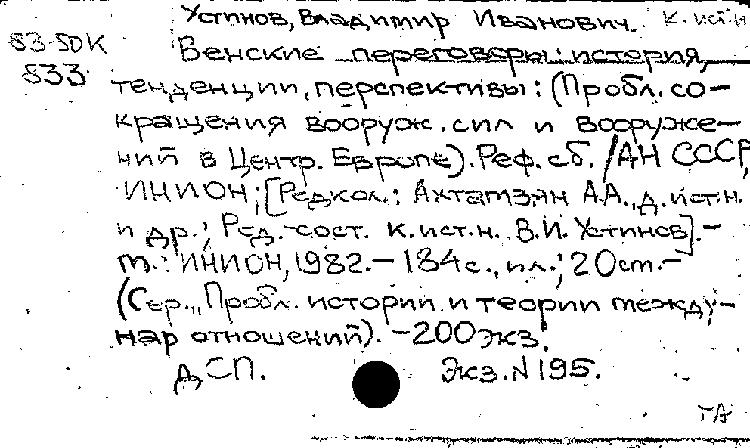 Устинов, Владимир Иванович. к. ист. н
83-50К
Венские переговоры: история,
833
тенденции, перспективы: (Пробл. со-
кращения вооруж. сил и вооруже-
ний в Центр. Европе). Реф. сб. /АН СССР,
ИНИОН; [Редкол.: Ахтамзян А.А., д. ист. н.
и др.; Ред.-сост. к. ист. н. В.И. Устинов].-
М.: ИНИОН, 1982.- 184 с., ил.; 20 см.-
(Сер. „Пробл. истории и теории между-
нар отношений). -200 экз.
ДСП. Экз. N 195.
ГА